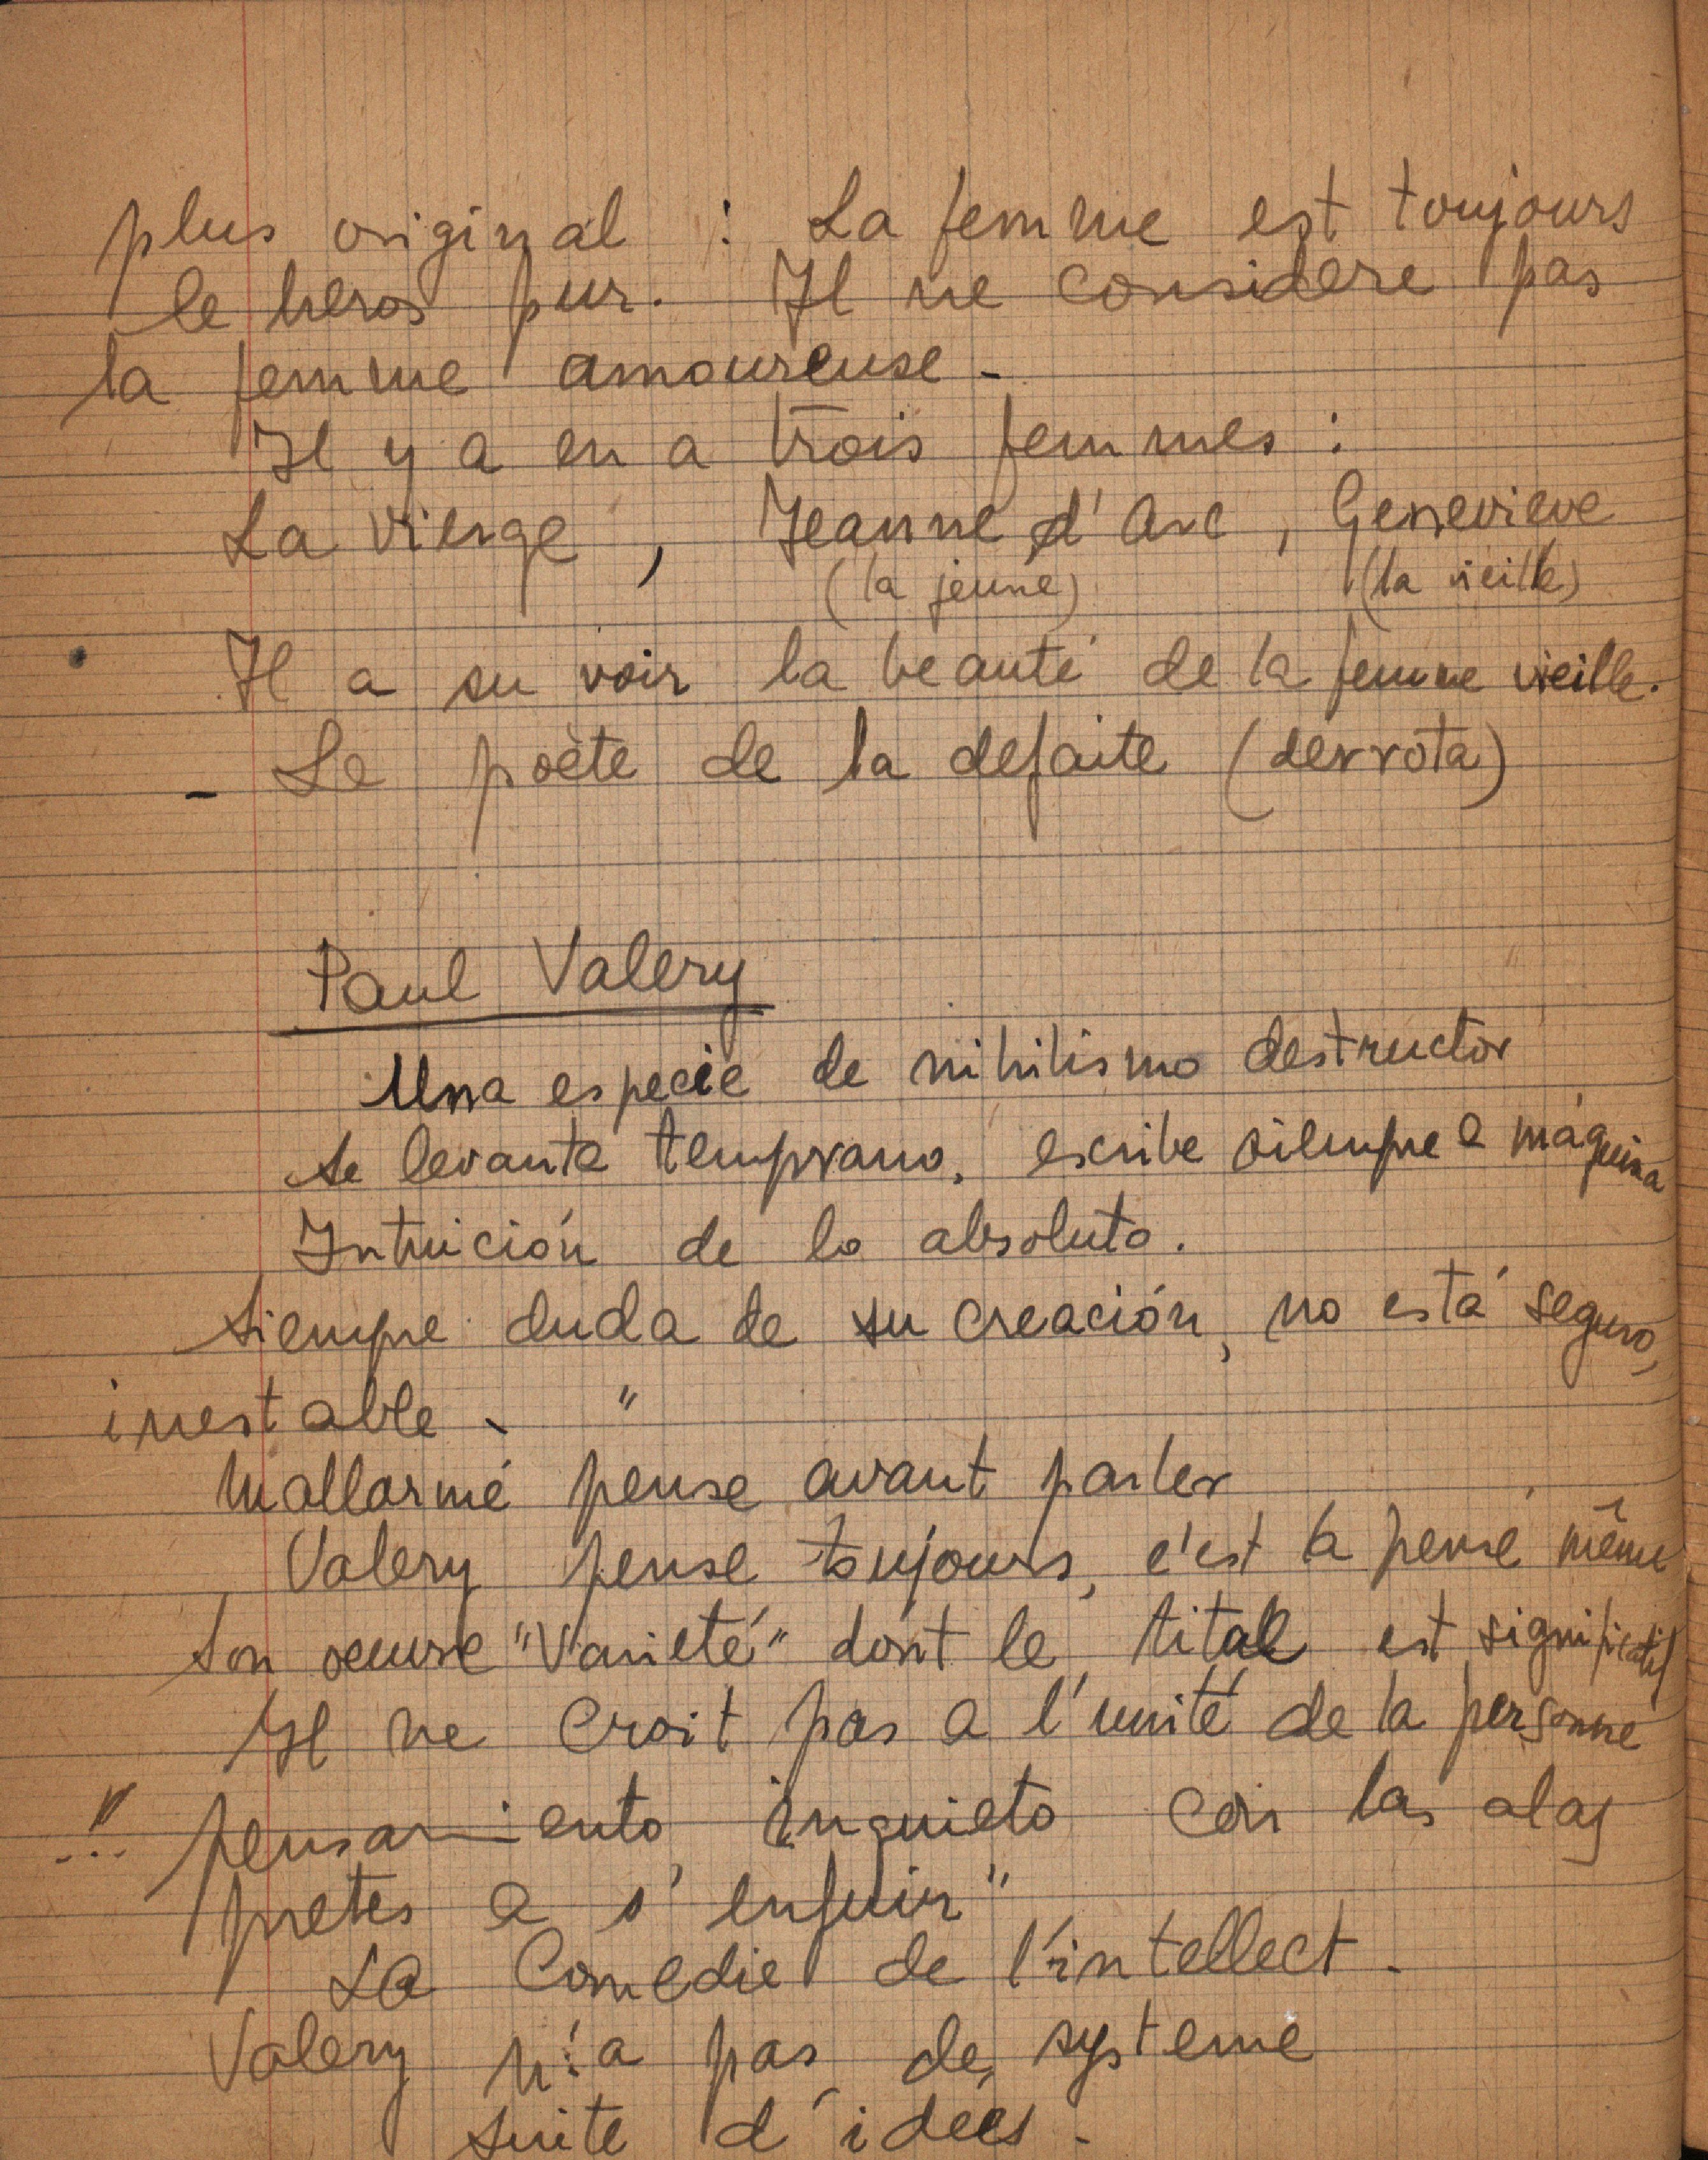 plus original : La femme est toujours
le heros pur. Il ne considere pas
la femme amoureuse -
Il y a en a trois femmes :
La Vierge , Jeanne d'Arc , Genevieve
(la jeune) (la vieille)
Il a su voir la beauté de la femme vieille.
- Le poète de la defaite (derrota)
Paul Valery
Una especie de nihilismo destructor
se levanta temprano, escribe siempre a máquina
Intuición de lo absoluto.
Siempre duda de su creación, no está seguro,
inestable - "
Mallarmé pense avant parler
Valery pense toujours, c'est la pensé même
Son oeuvre "Varieté" dont le titale est significatif
Il ne croit pas a l'unité de la personne
..." pensamiento, inquieto con las alas
pretes a s'enfuir"
La Comedie de l'intellect -
Valery n'a pas de systeme
suite d'idées -